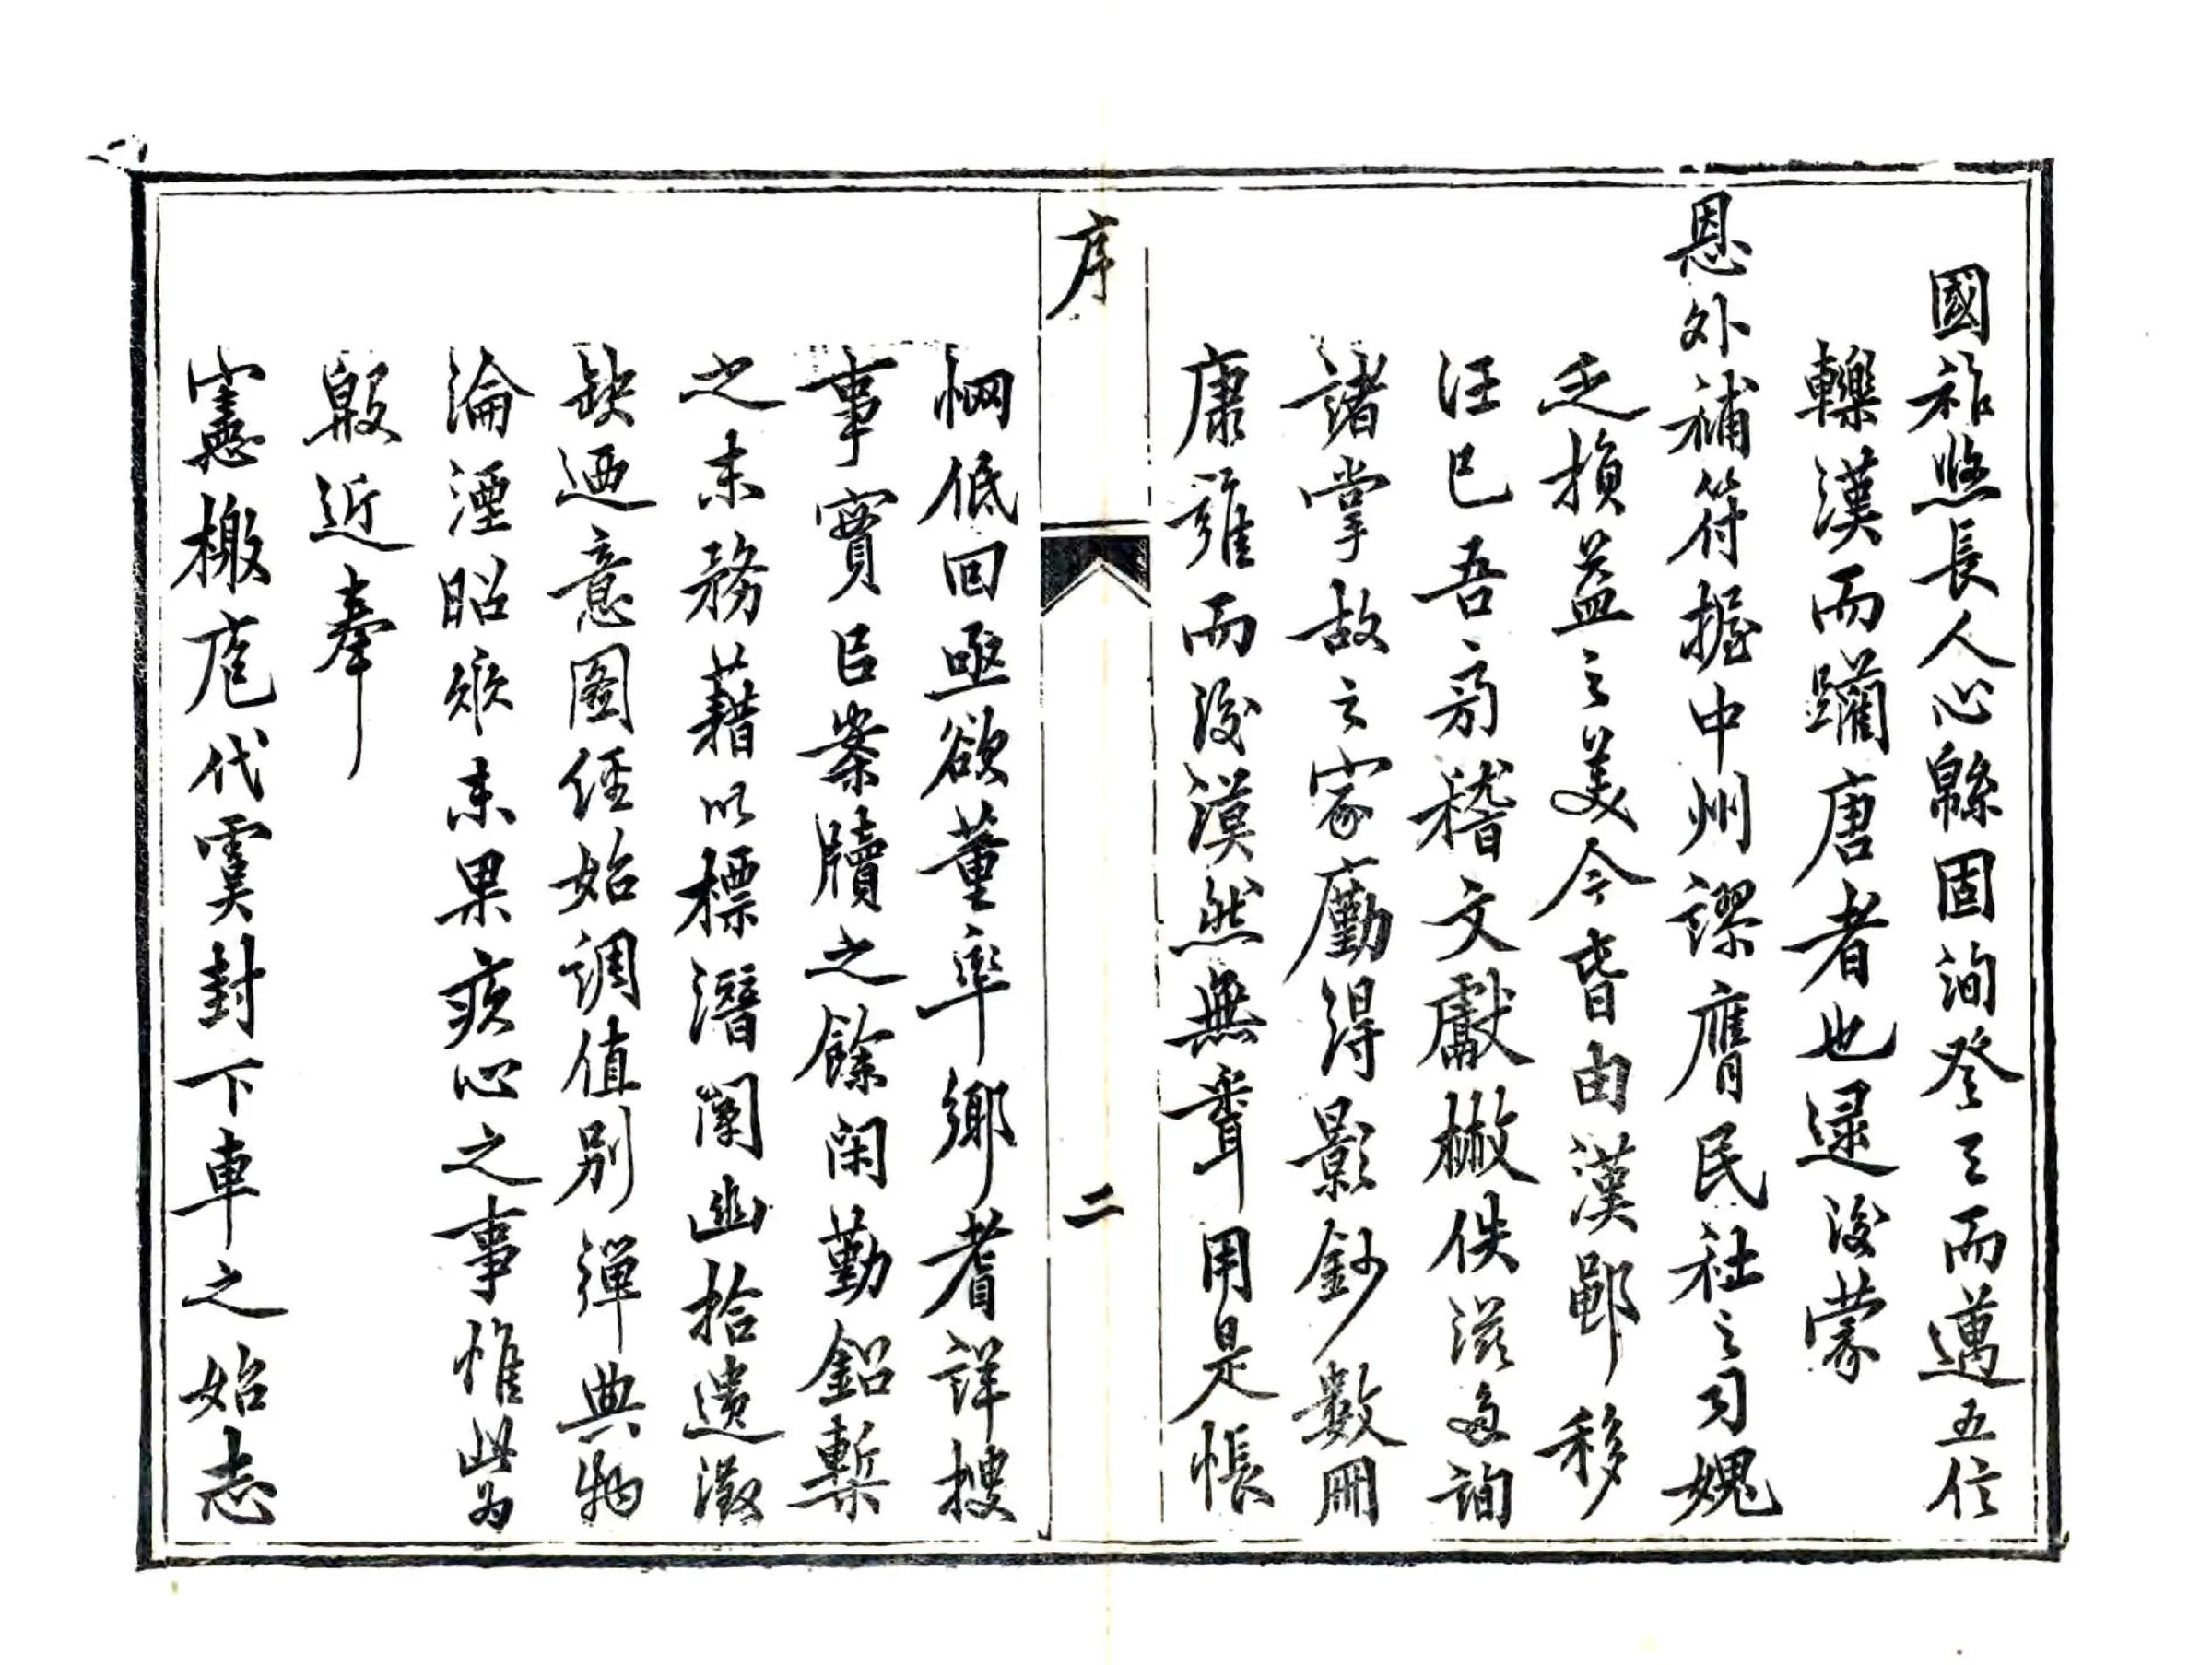 國祚悠長人心緜固洵登三而邁五信
轢漢而躪唐者也逯後蒙
恩外補符握中州謬膺民社之司媿
乏損益之美今昔由漢郵移
汪已吾病稽文獻樾佚滋多詢
諸掌故之家廑得影鈔數冊
康雍而後漠然無聋用是悵
序
二
惘低回亟欲董率鄉耆詳搜
事實臣案牘之餘閑勤鉛槧
之末務藉以標潛闡幽拾遺澂
缺迺意圖經始調值別彈典物
淪湮昭烣未果疚心之事惟此為
殷近奉
憲檄庀代虞封下車之始志